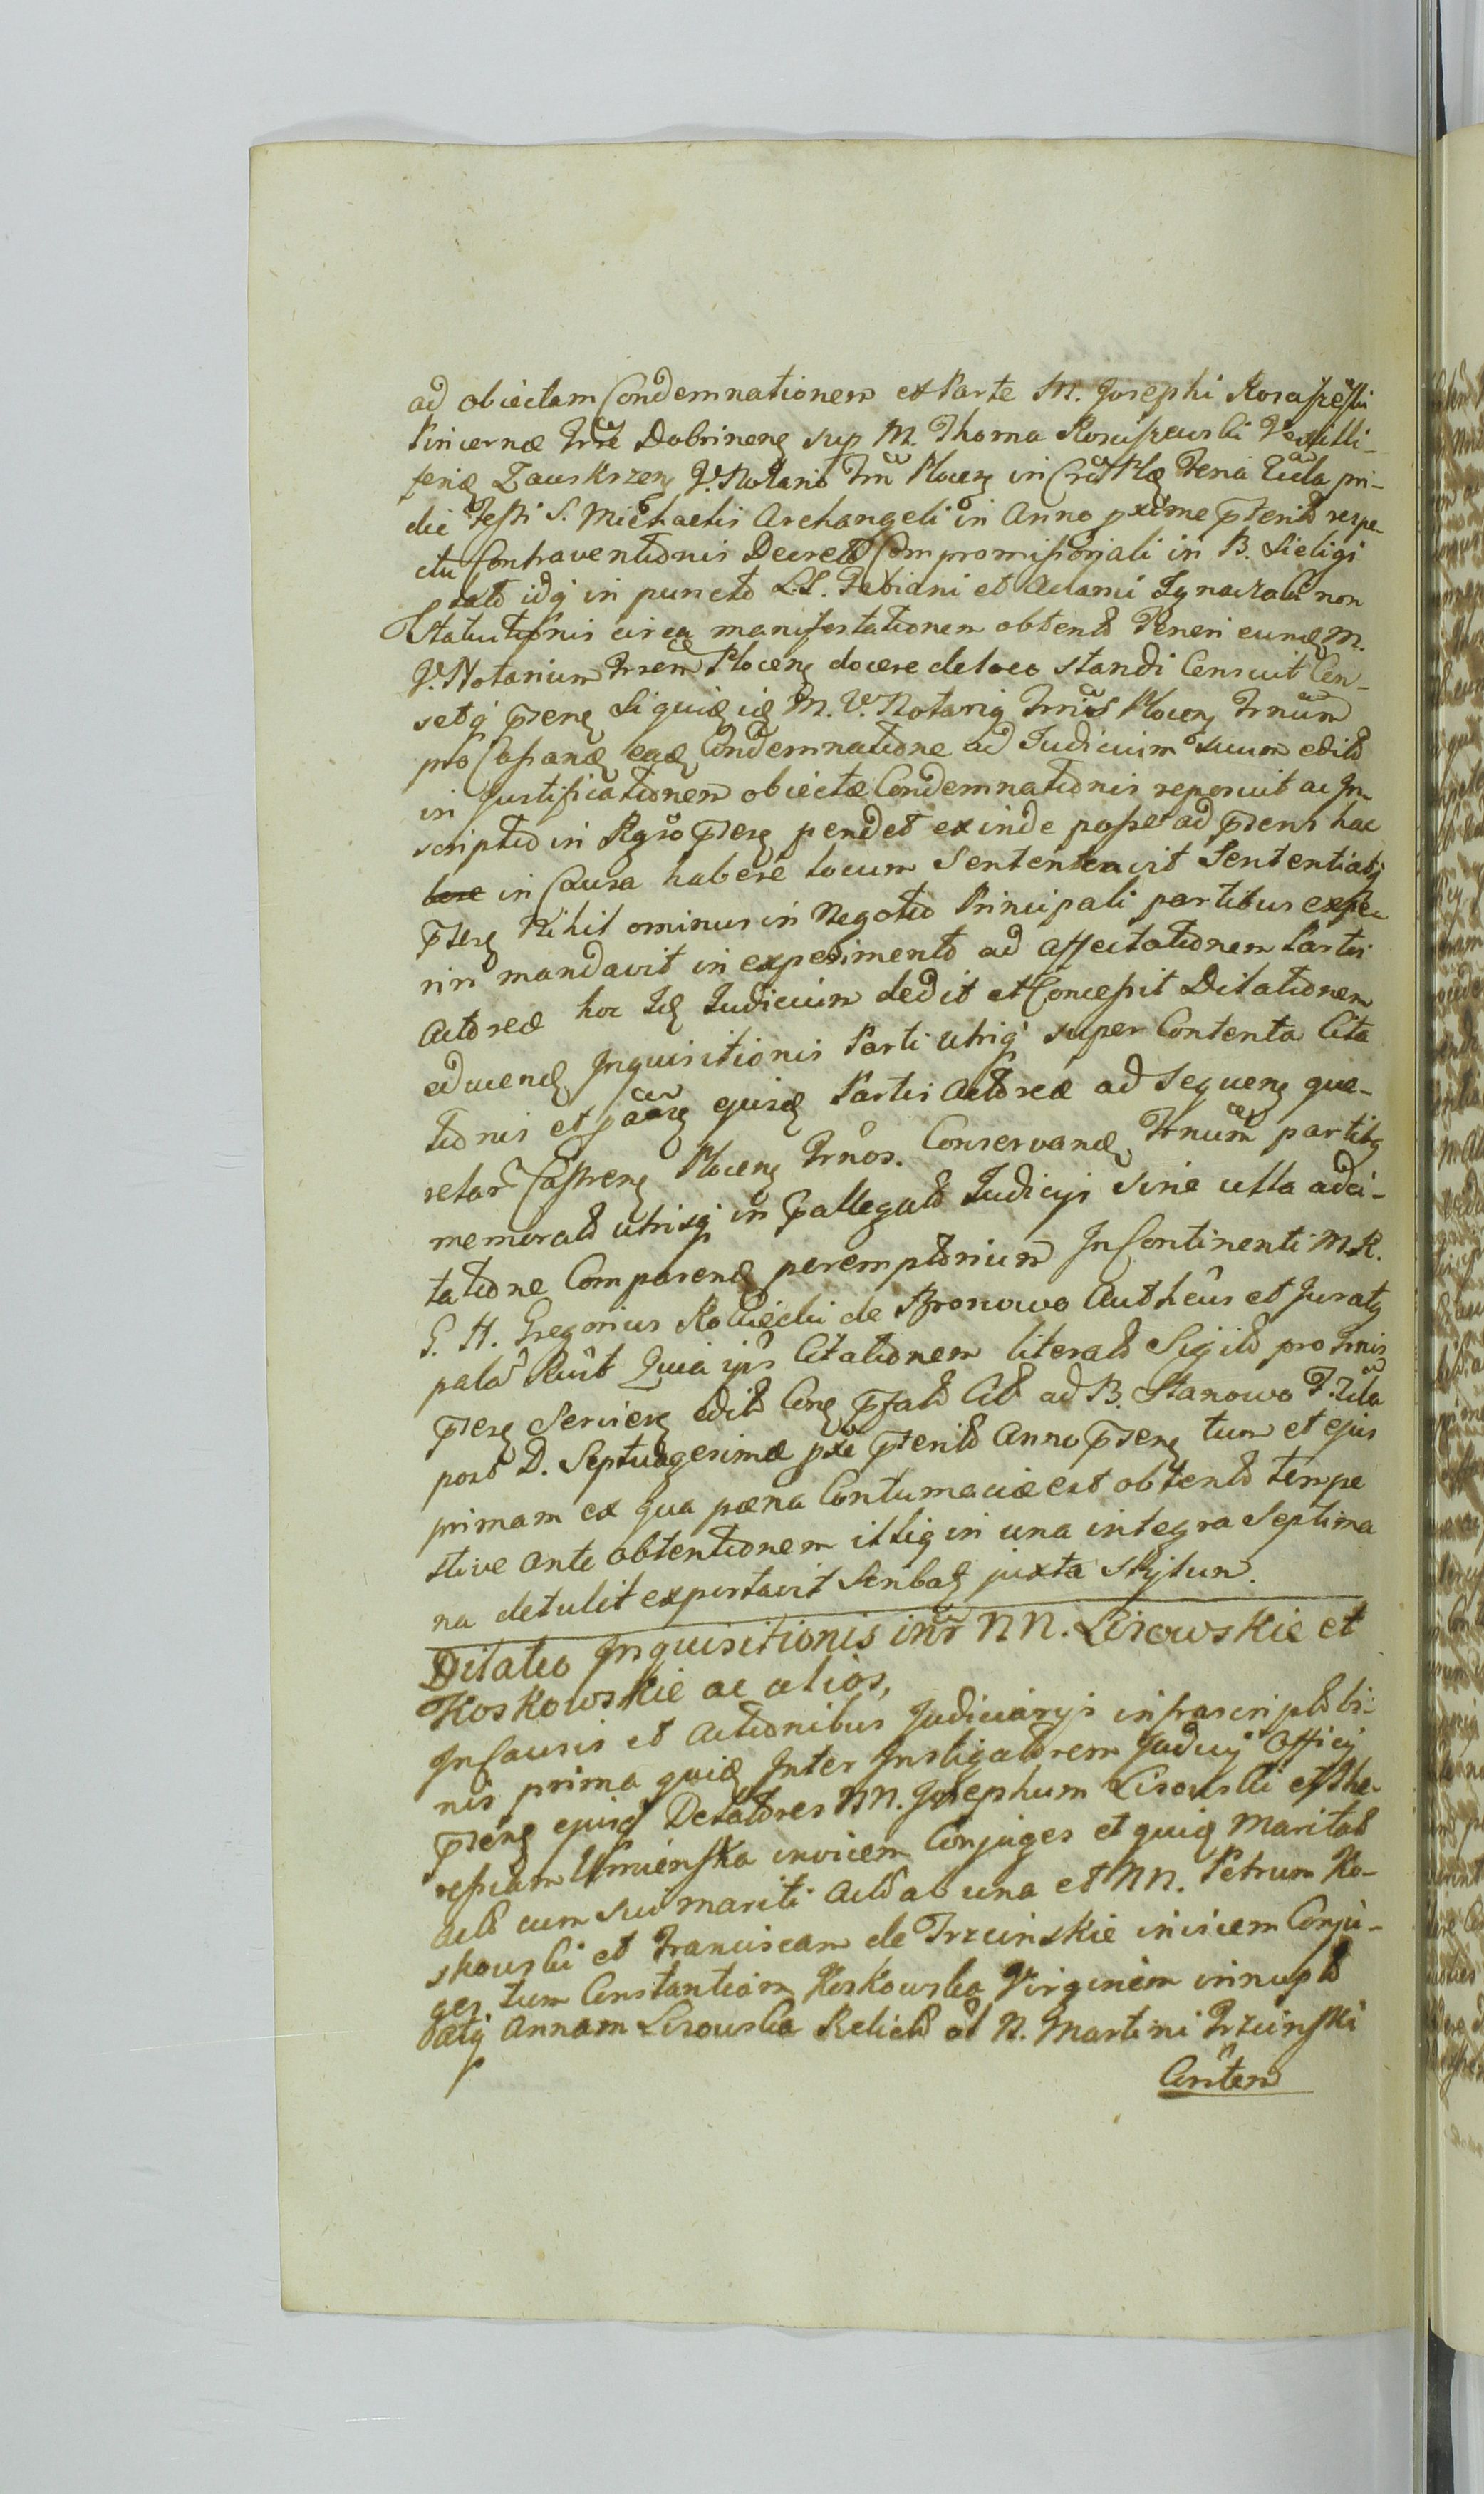 ad obiectam Condemnationem ex Parte M. Josephi Rosciszewski
Pincernæ Trræ Dobrinen sup M. Thoma Rosciszewski Vexilli-
feriд Zauskrzen V. Notario Trrli Plocen in Feria 2cda pri-
die Festi S. Michaelis Archangeli in Anno pxime pterito respe-
ctu Contraventionis Decreto Compromissoriali in B. Sieligi
lato idq in puncto LL. Fabiani et Adami Ignaczak non
Statuitionis circa manifestationem obtento Teneri eund M.
V. Notarium Trrem Plocen docere de loco standi Censuit Cen-
setq pten Siquid id M. V. Notarig Trris Plocen Trnum
pro Cassand ead Condemnatione ad Judicium suum edito
in Justificationem obiectæ Condemnationis reposuit ac In-
scriptio in Rgro pten pendet exinde posse ad ptens hac
in Causa habere locum Sententiavit Sententiatq
pten Nihil ominus in Negotio Principali partibus expe-
riri mandavit in experimento ad affectationem Partis
Actoreæ hoc Id Judicium dedit et Concessit Dilationem
educend Inquisitionis Parti utriq super Contenta Cita
tionis et ejusd Partis Actoreæ ad sequen que-
relar Castren Plocen Trnos. Conservand Trnum partibg
memorato utrisq in pallegato Judicys sine ulla adci-
tatione Comparend peremptorium In Continenti M. R.
G. H. Gregorius Kosciecki de Bronowo Authcus et Juratg
palar Rcit Quia ips Citationem literato Sigilo pro Trnis
pten Servien edito Cen pfato Cit ad B. Stanowo F. 2da
post D. Septuagesimæ pxe pterito Anno pten tum et ejus
primam ex qua pæna Contumaciæ est obtento tempe
stive ante obtentionem illig in una integra Septima
na detulit exportavit Scribad juxta Stylum.
Dilatio Inquisitionis intr NN. Lisowskie et
Koskowskie ac alios,
In Causis et Actionibus Judiciarys infrascripto bi-
nis prima quid Inter Instigatorem Judicy Officy
pten ejusq Delatores NN. Josephum Lisowski et The-
resiam Umienska invicem Conjuges et quid Maritat
acto cum sui mariti acto ab una et NN. Petrum Ko-
skowski et Franciscam de Trzcinskie invicem Conju-
ges tum Constantiam Koskowska Virginem innupto
atq Annam Lisowska Relicto ol N. Martini Trzcinski
Consten